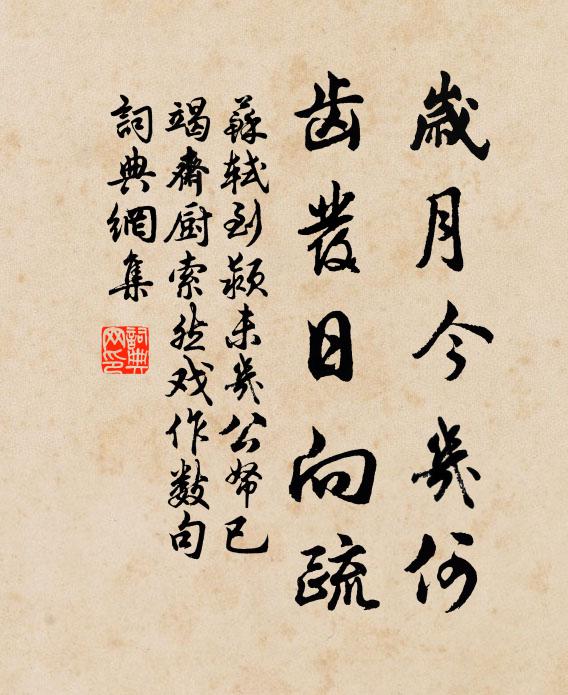 歲月今幾何
齿發日向疏
蘇軾到潁未幾公帑已
竭齋厨索然戏作數句
詞典網集
詞典网印